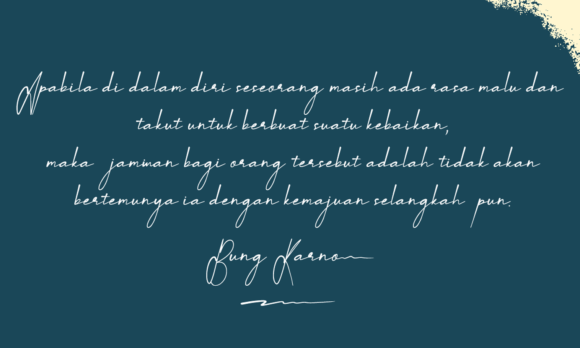 Apabila di dalam diri seseorang masih ada rasa malu dan
takut untuk berbuat suatu kebaikan,
maka jaminan bagi orang tersebut adalah tidak akan
bertemunya ia dengan kemajuan selangkah pun.
Bung Karno